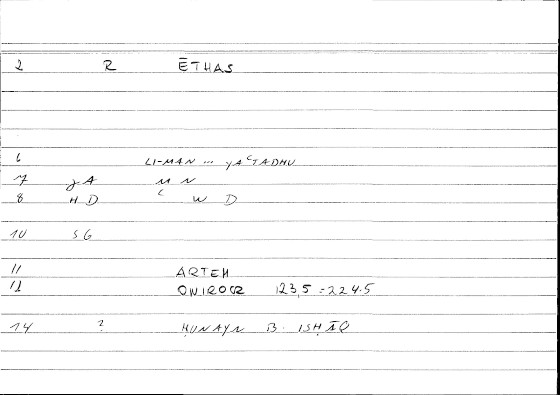 2 R ĒTHAS
6 LI-MAN ... YAʿTADHU
7 JA MN
8 HD ʿWD
10 SG
11 ARTEM
12 ONIROCR 123,5 = 224.5
14 ? ḤUNAYN B. ISḤĀQ